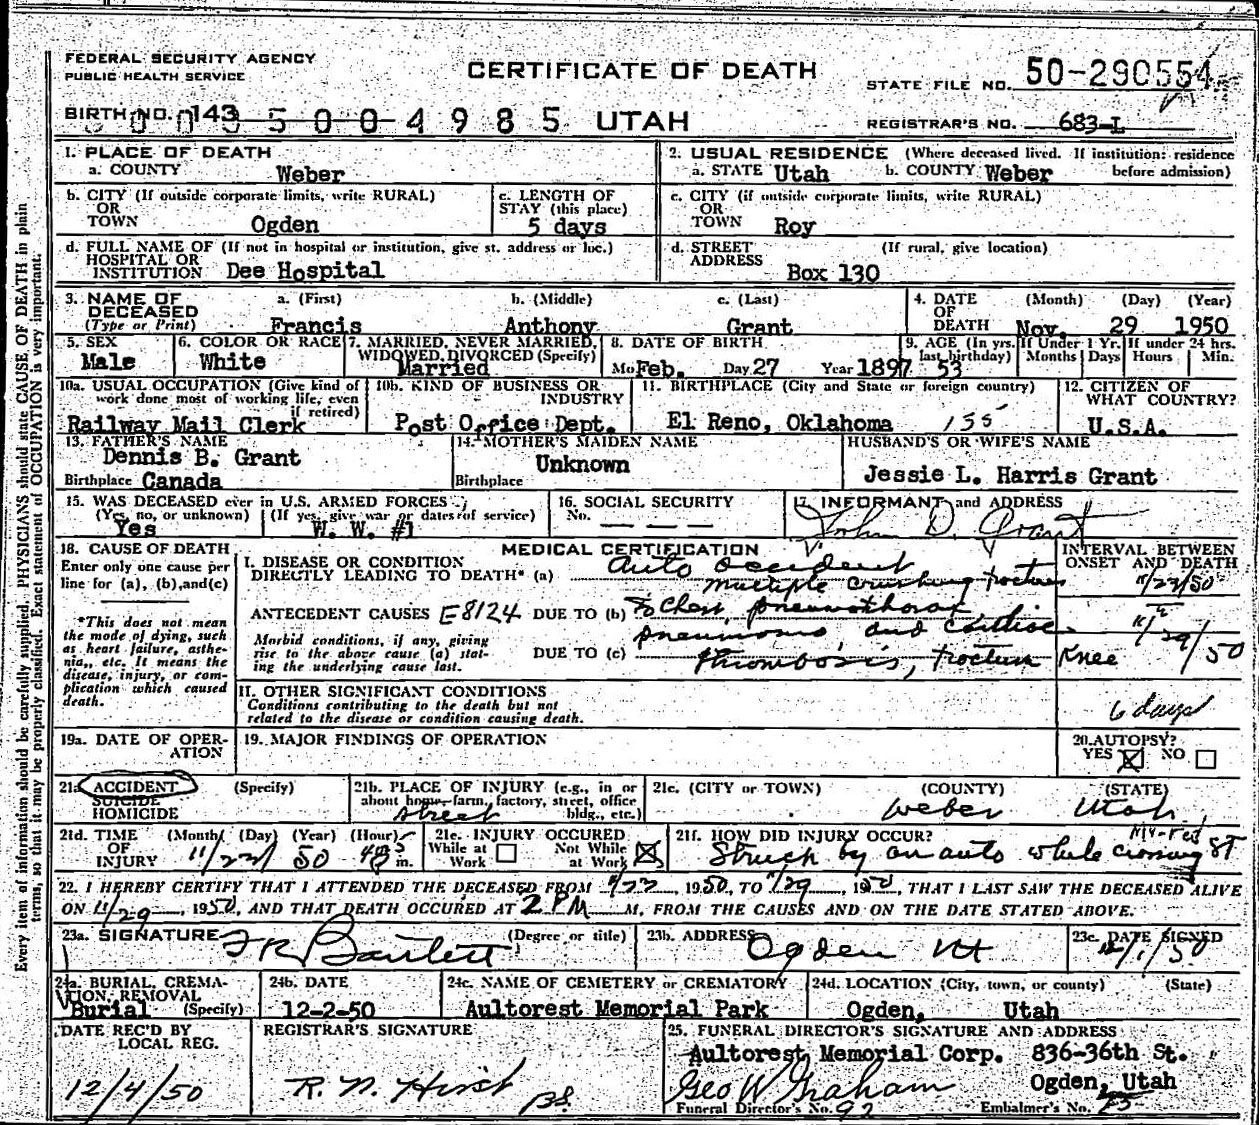 FEDERAL SECURITY AGENCY
PUBLIC HEALTH SERVICE
CERTIFICATE OF DEATH
STATE FILE NO. 50-290554
BIRTH NO. 143
5004985 UTAH
REGISTRAR'S NO. 683-L
1. PLACE OF DEATH
a. COUNTY Weber
2. USUAL RESIDENCE (Where deceased lived. If institution: residence before admission)
a. STATE Utah b. COUNTY Weber
b. CITY (If outside corporate limits, write RURAL)
OR
TOWN Ogden
c. LENGTH OF
STAY (this place)
5 days
c. CITY (if outside corporate limits, write RURAL)
OR
TOWN Roy
d. FULL NAME OF (If not in hospital or institution, give st. address or loc.)
HOSPITAL OR
INSTITUTION Dee Hospital
d. STREET (If rural, give location)
ADDRESS Box 130
3. NAME OF
DECEASED
(Type or Print)
a. (First) b. (Middle) c. (Last)
Francis Anthony Grant
4. DATE (Month) (Day) (Year)
OF
DEATH Nov. 29 1950
5. SEX
Male
6. COLOR OR RACE
White
7. MARRIED, NEVER MARRIED,
WIDOWED, DIVORCED (Specify)
Married
8. DATE OF BIRTH
Mo Feb. Day 27 Year 1897
9. AGE (In yrs. last birthday)
53
If Under 1 Yr.
Months Days
If under 24 hrs.
Hours Min.
10a. USUAL OCCUPATION (Give kind of
work done most of working life, even
if retired)
Railway Mail Clerk
10b. KIND OF BUSINESS OR
INDUSTRY
Post Office Dept.
11. BIRTHPLACE (City and State or foreign country)
El Reno, Oklahoma 155
12. CITIZEN OF
WHAT COUNTRY?
U.S.A.
13. FATHER'S NAME
Dennis B. Grant
Birthplace Canada
14. MOTHER'S MAIDEN NAME
Unknown
Birthplace
HUSBAND'S OR WIFE'S NAME
Jessie L. Harris Grant
15. WAS DECEASED ever in U.S. ARMED FORCES
(Yes, no, or unknown) (If yes, give war or dates of service)
Yes W. W. #1
16. SOCIAL SECURITY
No. — — —
17. INFORMANT and ADDRESS
John D. Grant
18. CAUSE OF DEATH
Enter only one cause per
line for (a), (b), and (c)
*This does not mean
the mode of dying, such
as heart failure, asthe-
nia,, etc. It means the
disease, injury, or com-
plication which caused
death.
MEDICAL CERTIFICATION
INTERVAL BETWEEN
ONSET AND DEATH
I. DISEASE OR CONDITION
DIRECTLY LEADING TO DEATH* (a) Auto accident
multiple crushing fractures 11/22/50
ANTECEDENT CAUSES E8124 DUE TO (b) to chest, pneumothorax,
pneumonia, and
Morbid conditions, if any, giving
rise to the above cause (a) stat-
ing the underlying cause last.
DUE TO (c) thrombosis, fracture Knee 11/29/50
II. OTHER SIGNIFICANT CONDITIONS
Conditions contributing to the death but not
related to the disease or condition causing death.
6 days
19a. DATE OF OPER-
ATION
19. MAJOR FINDINGS OF OPERATION
20. AUTOPSY?
YES NO
21. ACCIDENT (Specify)
SUICIDE
HOMICIDE
21b. PLACE OF INJURY (e.g., in or
about home, farm, factory, street, office
bldg., etc.)
Street
21c. (CITY OR TOWN) (COUNTY) (STATE)
Weber Utah
21d. TIME (Month) (Day) (Year) (Hour)
OF
INJURY 11/22/ 50 m.
21e. INJURY OCCURED
While at Work Not While at Work
21f. HOW DID INJURY OCCUR?
Struck by an auto while crossing ST
22. I HEREBY CERTIFY THAT I ATTENDED THE DECEASED FROM 11/22, 1950, TO 11/29, 1950, THAT I LAST SAW THE DECEASED ALIVE
ON 11/29, 1950, AND THAT DEATH OCCURED AT 2 PM M, FROM THE CAUSES AND ON THE DATE STATED ABOVE.
23a. SIGNATURE (Degree or title)
F R Bartlett
23b. ADDRESS
Ogden Ut
23c. DATE SIGNED
12/1/50
24a. BURIAL, CREMA-
TION, REMOVAL
Burial (Specify)
24b. DATE
12-2-50
24c. NAME OF CEMETERY or CREMATORY
Aultorest Memorial Park
24d. LOCATION (City, town, or county) (State)
Ogden, Utah
DATE REC'D BY
LOCAL REG.
12/4/50
REGISTRAR'S SIGNATURE
R. N. Hirst
25. FUNERAL DIRECTOR'S SIGNATURE AND ADDRESS
Aultorest Memorial Corp. 836-36th St.
Geo W Graham Ogden, Utah
Funeral Director's No. 92 Embalmer's No.
Every item of information should be carefully supplied. PHYSICIANS should state CAUSE OF DEATH in plain
terms, so that it may be properly classified. Exact statement of OCCUPATION is very important.